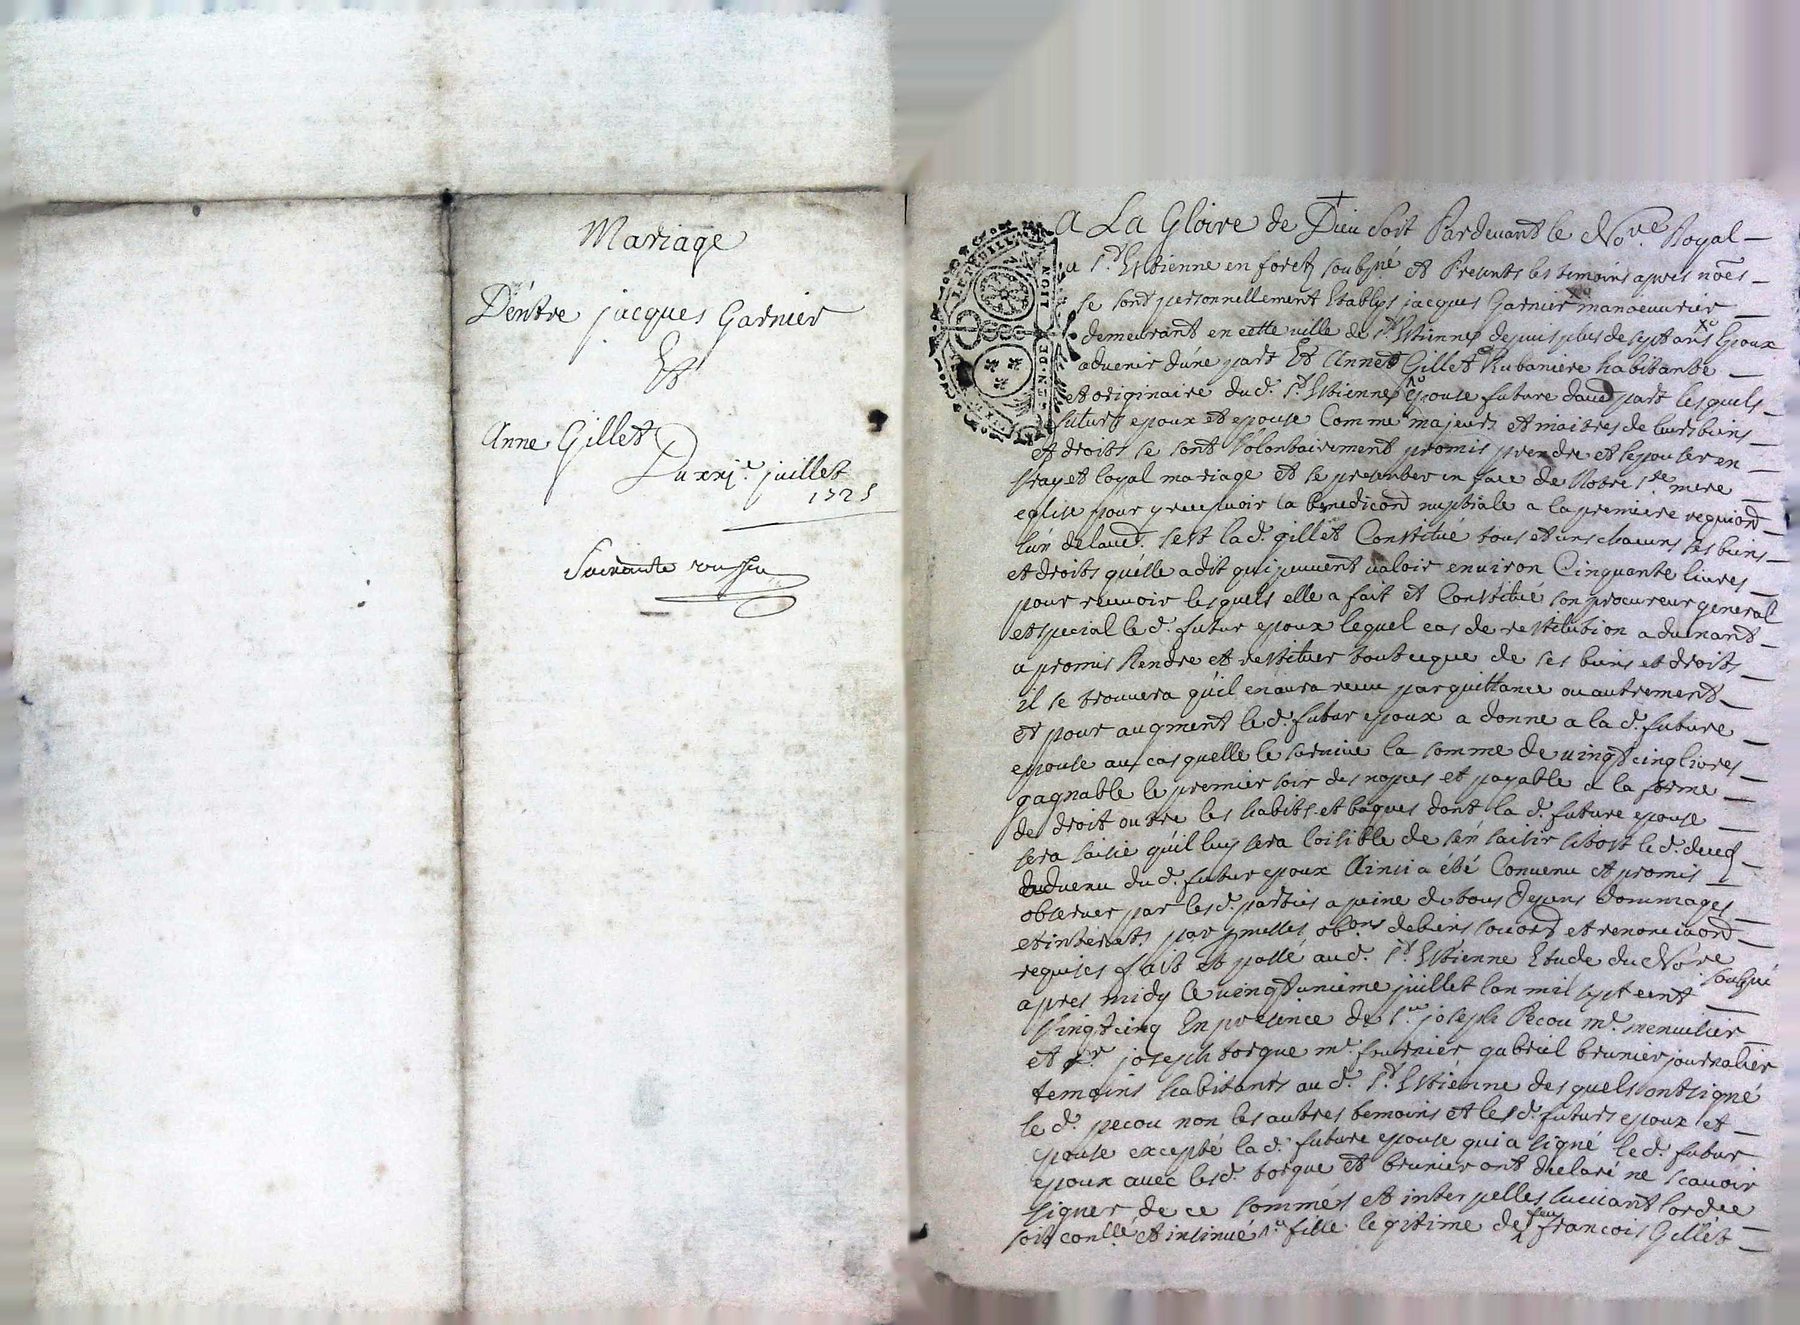 Mariage
D'éntre jacques Garnier
Et
Anne Gillet
Du xxj.e juillet
1725
A La Gloire de Dieu soit Pardevant le No.re Royal
a s.t Estienne en forest soubsné et Presents les temoins apres noes
se sont personnellement Etablys jacques Garnier manoeuvrier
demeurant en cette ville de s.t Estienne depuis plus de sept ans Epoux
advenir d'une part Et Anne Gillet Rubaniere habitante
et originaire dud. s.t Estienne epouse future d'autre part lesquels
futurs epoux et epouse Comme majeurs et maitres de leurs biens
et droits se sont volontairement promis prendre et s'epouser en
vray et loyal mariage et se presenter en face de Notre s.te mere
eglise pour y recepvoir la benediction nuptiale a la premiere requion
lun delaud. sest la d. gillet Constitué tous et uns chacuns ses biens
et droits quelle a dit qui peuvent valoir environ Cinquante livres
pour recevoir lesquels elle a fait et Constitué son procureur general
et special le d. futur epoux lequel cas de restitution advenant
a promis Rendre et restituer tout ceque de ses biens et droits
il se trouvera qu'il en aura receu par quittance ou autrement
et pour augment le d. futur epoux a donne a la d. future
epouse au cas quelle le survive la somme de vingt cinq livres
gagnable le premier soir des nopces et payable a la forme
de droit outre les habits et bagues dont la d. future epouse
sera saisie qu'il luy sera loisible de s'en saisir sitost le d. deced
advenu du d. futur epoux Ainsi a été Convenu et promis
observer par les d. parties a peine de tous depens dommages
et intérets par mesmes ob.ons de biens et renonciaon
requises fait et passé aud. s.t Estienne Etude du No.re soubsné
apres midy le vingt unieme juillet lan mil sept cent
vingt cinq En presence de s.r joseph Pecou m.e menuisier
et joseph torque m.e fournier gabriel brunier journalier
temoins habitants aud. s.t Estienne desquels ont signé
le d. pecou non les autres temoins et les d. futurs epoux et
epouse excepté la d. future epouse qui a signé le d. futur
epoux avec les d. torque et brunier ont declaré ne scavoir
signer de ce sommés et interpelles suivant lordce
soit con.llé et insinué fille legitime de feu francois Gillet